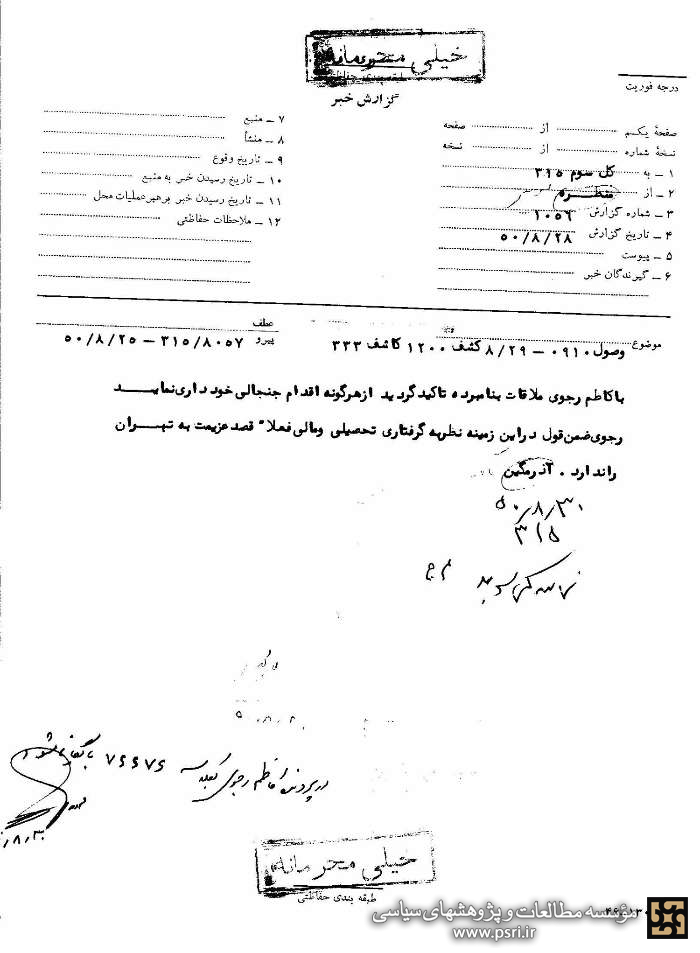 خیلی محرمانه
طبقه بندی حفاظتی
گزارش خبر
درجه فوریت
صفحهٔ یکم از صفحه
نسخهٔ شماره از نسخه
۱ ـ به کل سوم ۳۱۵
۲ ـ از منظره
۳ ـ شماره گزارش ۱۰۵۶
۴ ـ تاریخ گزارش ۵۰/۸/۲۸
۵ ـ پیوست
۶ ـ گیرندگان خبر
۷ ـ منبع
۸ ـ منشأ
۹ ـ تاریخ وقوع
۱۰ ـ تاریخ رسیدن خبر به منبع
۱۱ ـ تاریخ رسیدن خبر برهبر عملیات محل
۱۲ ـ ملاحظات حفاظتی
موضوع وصول ۰۹۱۰ ـ ۸/۲۹ کشف ۱۲۰۰ کاشف ۳۳۳
عطف
پیرو ۳۱۵/۸۰۵۷ ـ ۵۰/۸/۲۵
باکاظم رجوی ملاقات بنامبرده تاکیدگردید ازهرگونه اقدام جنجالی خودداری نماید
رجوی ضمن قول دراین زمینه نظربه گرفتاری تحصیلی ومالی فعلا" قصد عزیمت به تهران
راندارد . آذرمگین
۵۰/۸/۳۰
۳۱۵
در پرونده کاظم رجوی بکلاسه ۷۶۶۷۶ بایگانی شود
خیلی محرمانه
طبقه بندی حفاظتی
مؤسسه مطالعات و پژوهشهای سیاسی
www.psri.ir